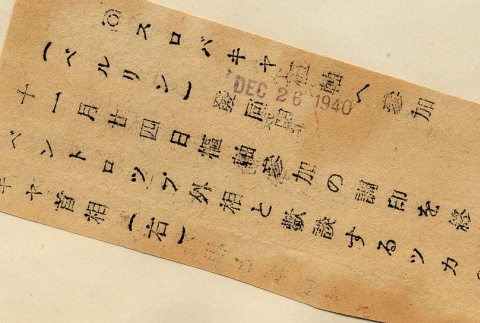 ◎スロバキヤ樞軸へ參加
(ベルリン) 發同盟
DEC 26 1940
十一月廿四日樞軸參加の調印を終
ベントロップ外相と歡談するツカ
キヤ首相(右)